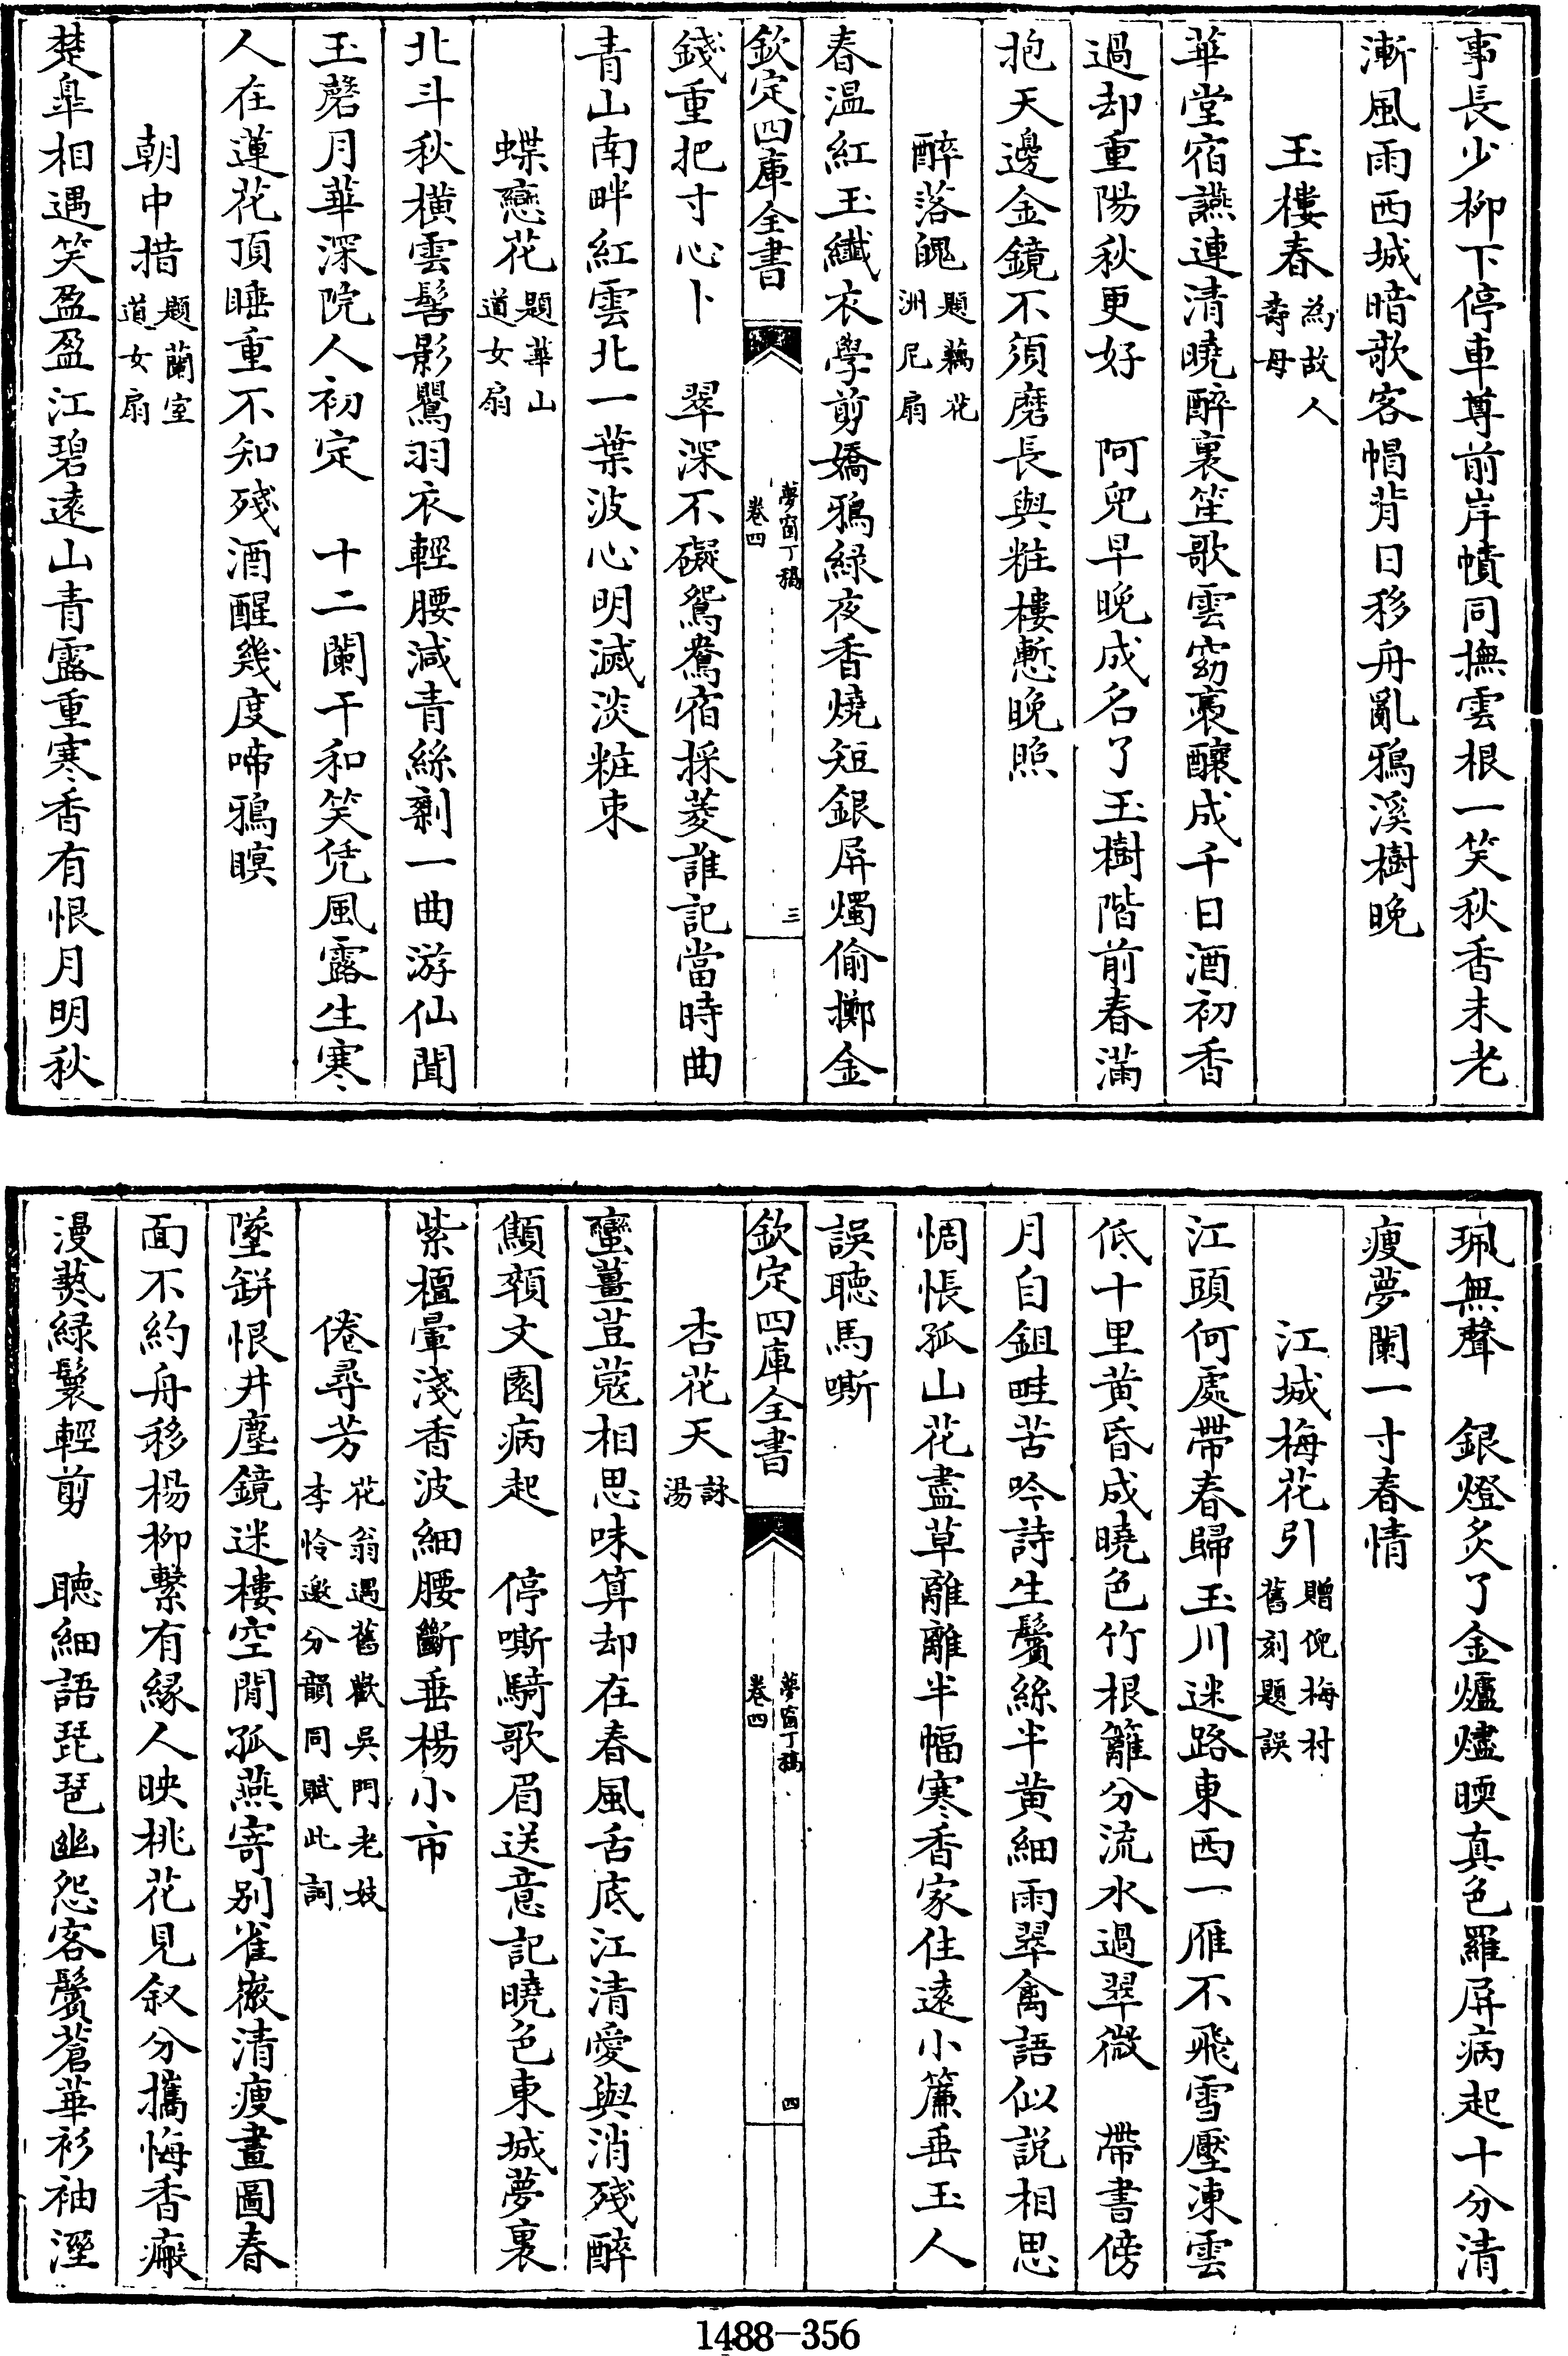 事長少柳下停車尊前岸幘同撫雲根一笑秋香未老
漸風雨西城暗歌客帽背日移舟亂鴉溪樹晚
玉樓春為故人壽母
華堂宿讌連清曉醉裏笙歌雲窈裊釀成千日酒初香
過却重陽秋更好　阿兒早晚成名了玉樹階前春滿
抱天邊金鏡不須磨長與粧樓慙晚照
醉落魄題藕花洲尼扇
春温紅玉纖衣學剪嬌鴉綠夜香燒短銀屏燭偷擲金
欽定四庫全書
夢窗丁稿
卷四
三
錢重把寸心卜　翠深不礙鴛鴦宿採菱誰記當時曲
青山南畔紅雲北一葉波心明滅淡粧束
蝶戀花題華山道女扇
北斗秋橫雲髻影鸎羽衣輕腰減青絲剩一曲游仙聞
玉磬月華深院人初定　十二闌干和笑凭風露生寒
人在蓮花頂睡重不知殘酒醒幾度啼鴉暝
朝中措題蘭室道女扇
楚臯相遇笑盈盈江碧遠山青露重寒香有恨月明秋
珮無聲　銀燈炙了金爐燼暎真色羅屏病起十分清
瘦夢闌一寸春情
江城梅花引贈倪梅村舊刻題誤
江頭何處帶春歸玉川迷路東西一雁不飛雪壓凍雲
低十里黄昏成曉色竹根籬分流水過翠微　帶書傍
月自鉏畦苦吟詩生鬢絲半黄細雨翠禽語似説相思
惆悵孤山花盡草離離半幅寒香家住遠小簾垂玉人
誤聽馬嘶
欽定四庫全書
夢窗丁稿
卷四
四
杏花天詠湯
蠻薑荳蔻相思味算却在春風舌底江清愛與消殘醉
顦顇文園病起　停嘶騎歌眉送意記曉色東城夢裏
紫檀暈淺香波細腰斷垂楊小市
倦尋芳花翁遇舊歡吳門老妓李怜邀分韻同賦此詞
墜缾恨井塵鏡迷樓空閒孤燕寄别崔徽清瘦畫圖春
面不約舟移楊柳繫有緣人映桃花見叙分攜悔香瘢
漫爇緑鬟輕剪　聽細語琵琶幽怨客鬢蒼華衫袖溼
1488—356